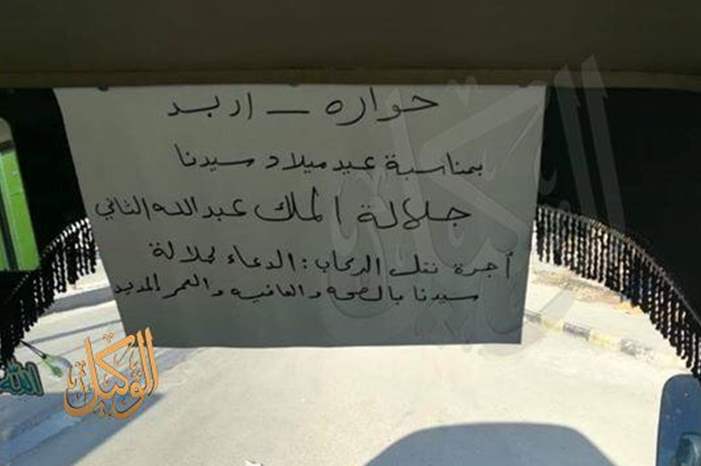 حواره – اربد
بمناسبة عيد ميلاد سيدنا
جلالة الملك عبدالله الثاني
أجرة نقل الركاب : الدعاء لجلالة
سيدنا بالصحه والعافيه والعمر المديد
الوكيل
الله